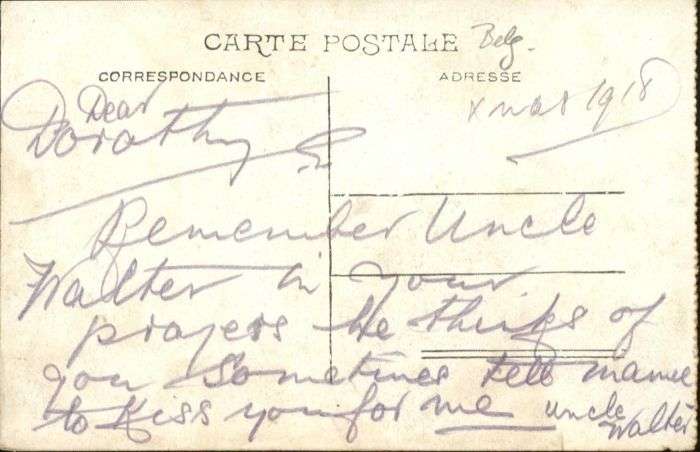 CARTE POSTALE Belg.
CORRESPONDANCE ADRESSE
Dear
Dorothy
Xmas 1918
Remember Uncle
Walter in your
prayers he thinks of
you sometimes tell mamee
to kiss you for me uncle
Walter